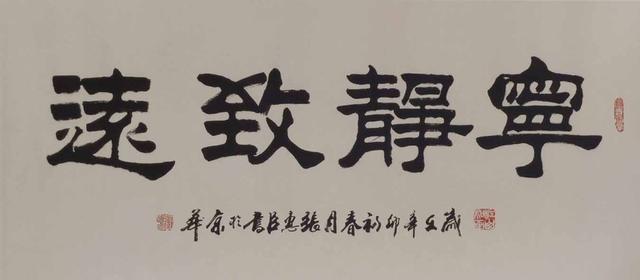 寧靜致遠
歲次辛卯初春月張惠臣書於京華